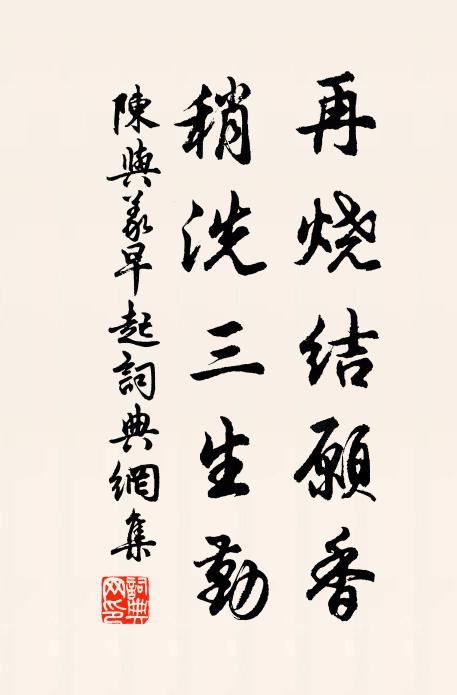 再烧结願香
稍洗三生勤
陳與義早起詞典網集
詞典網印